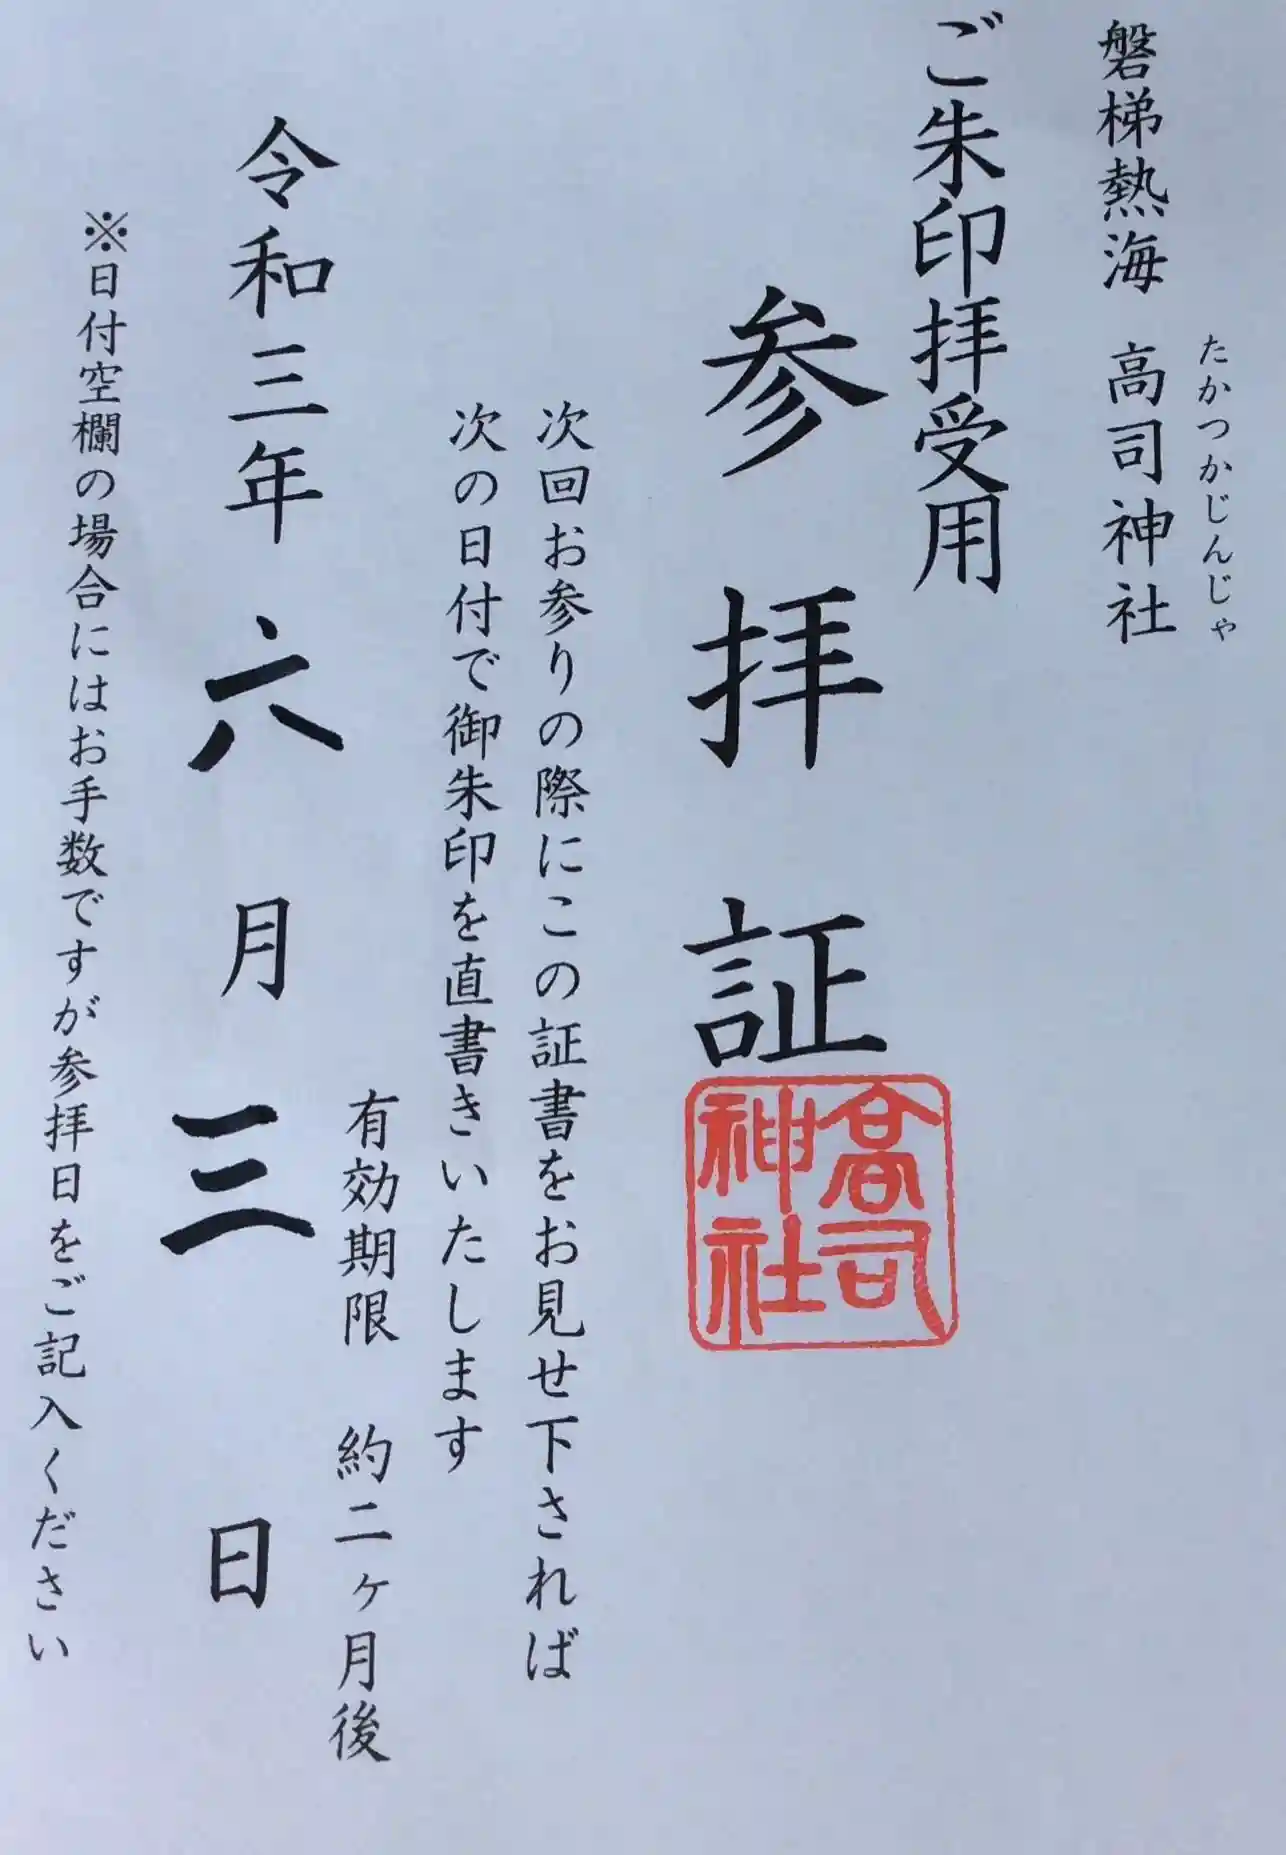 たかつかじんじゃ
磐梯熱海 高司神社
ご朱印拝受用
参拝証
高司
神社
次回お参りの際にこの証書をお見せ下されば
次の日付で御朱印を直書きいたします
有効期限 約二ヶ月後
令和三年 六月三日
※日付空欄の場合にはお手数ですが参拝日をご記入ください